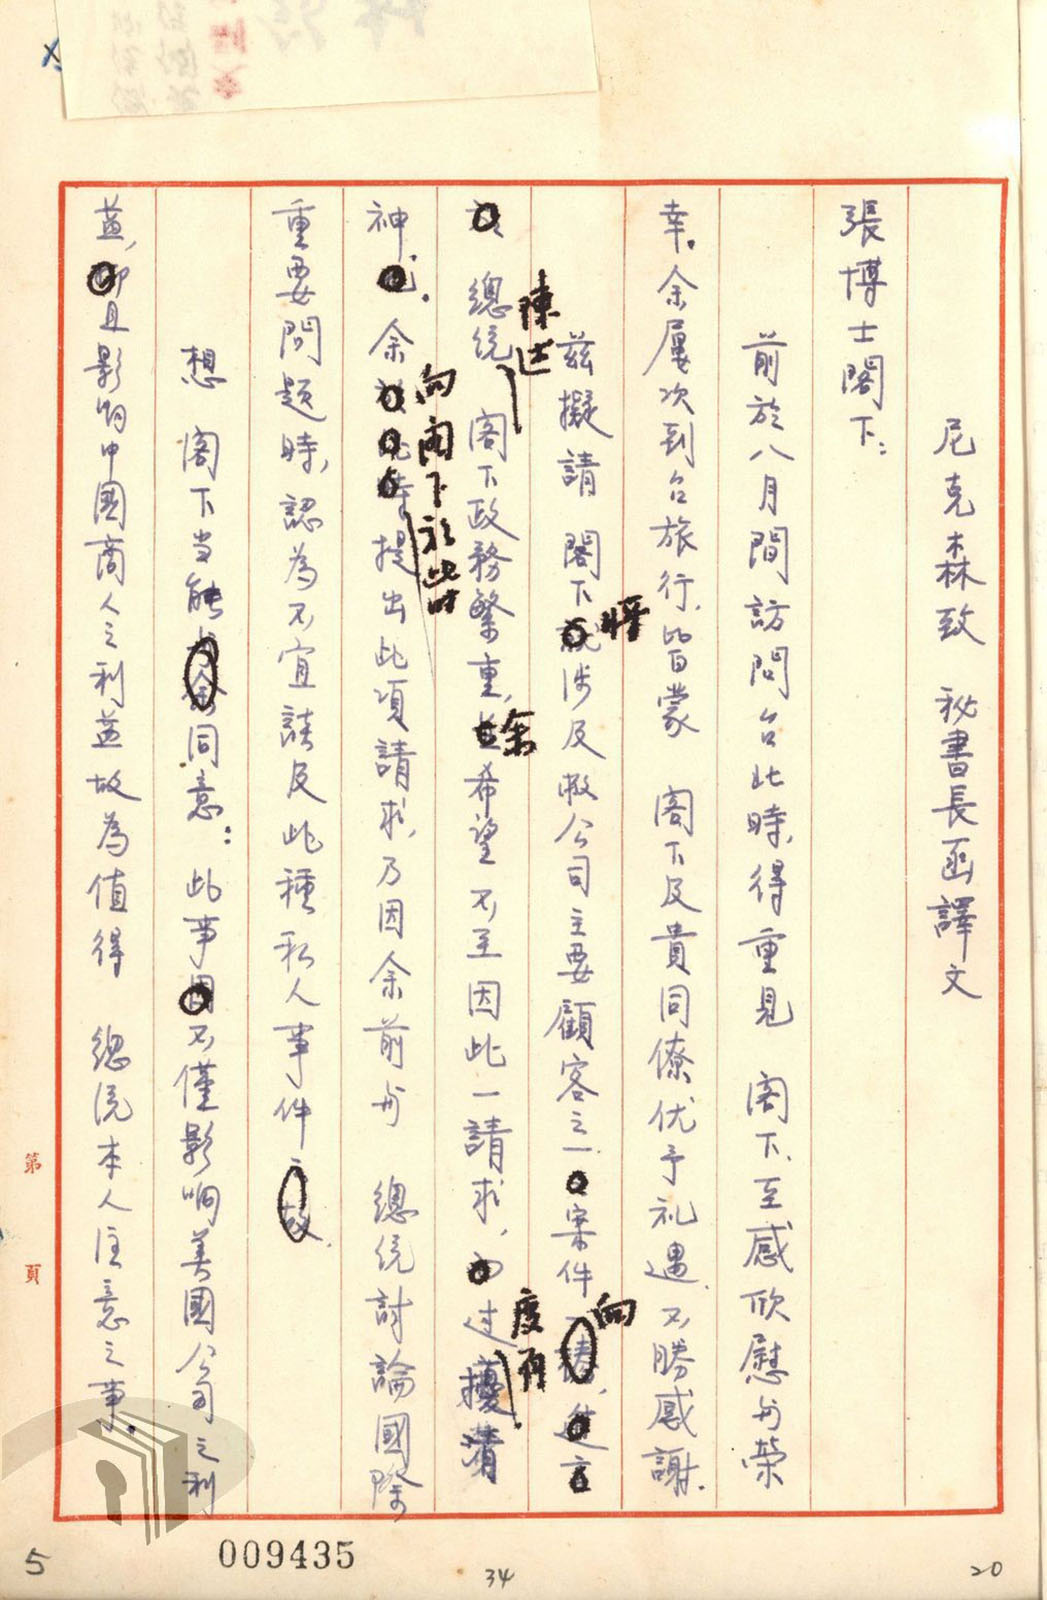 尼克森致 秘書長函譯文
張博士閣下:
前於八月間訪問台北時,得重見 閣下,至感欣慰與榮
幸。余屢次到台旅行,皆蒙 閣下及貴同僚优予礼遇,不勝感謝.
茲擬請 閣下將涉及敝公司主要顧客之一案件向
陳述
總統 閣下政務繁重,余希望不至因此一請求,過度有擾清
神。余向閣下於此時提出此項請求,乃因余前與 總統討論國際
重要問題時,認為不宜談及此種私人事件
想 閣下当能同意:此事不僅影响美國公司之利
益,且影响中國商人之利益故為值得 總統本人注意之事.
第 頁
5
009435
34
20